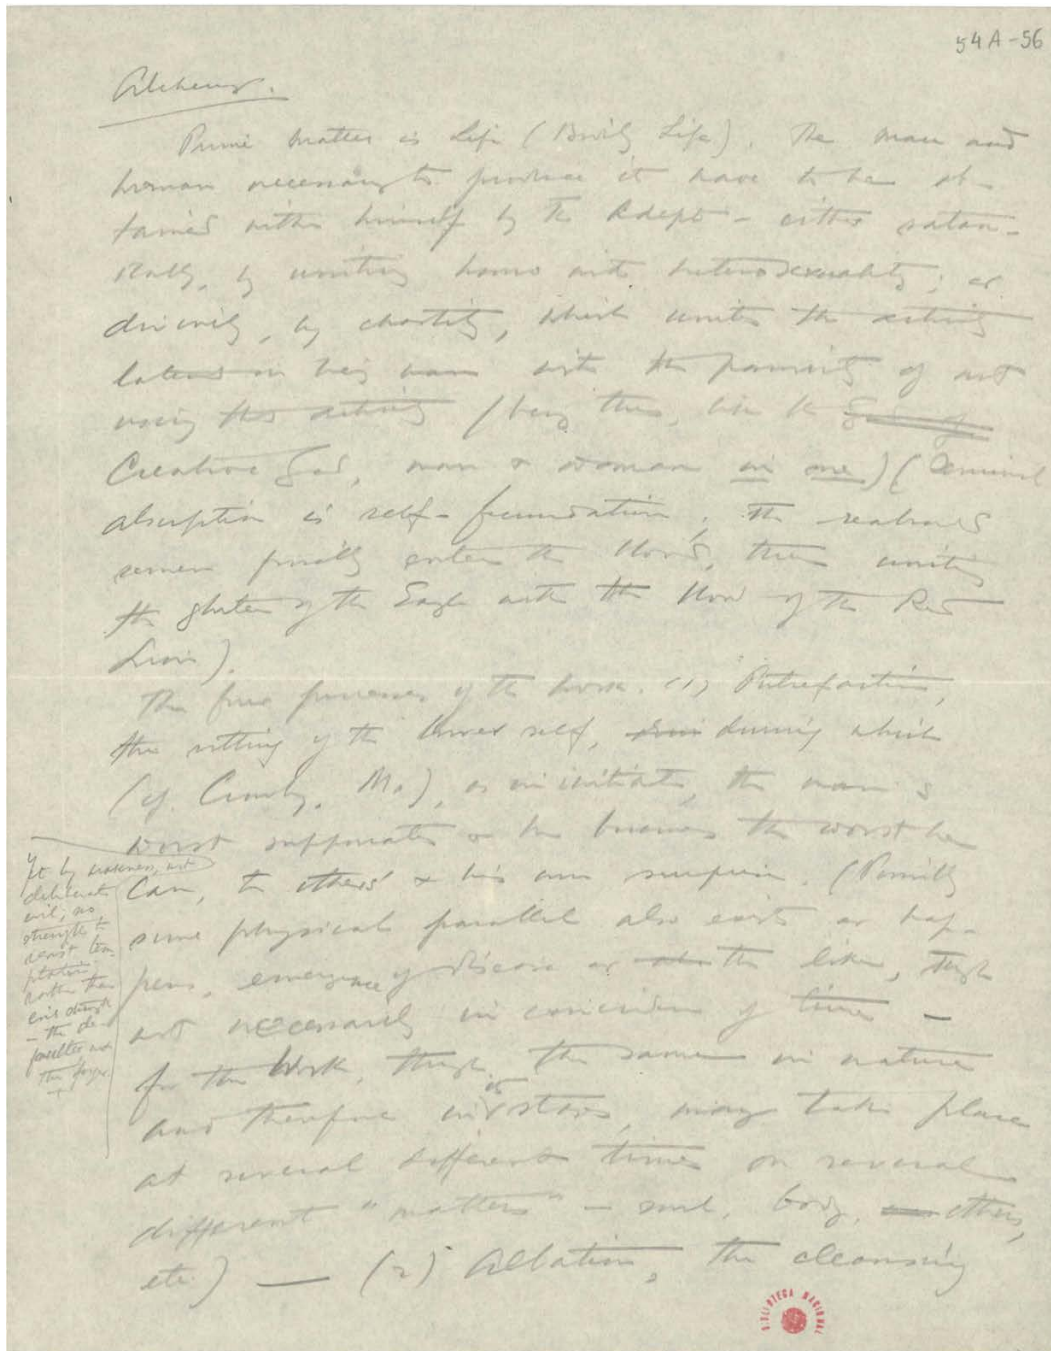 54A-56
Alchemy.
Prime matter is Life (Bodily Life). The man and
woman necessary to produce it have to be ob-
tained within himself by the Adept – either satan-
ically, by uniting homo with heterosexuality; or
divinely, by chastity, which unites the activity
latent in being man with the passivity of not
using this activity (being thus, like the
Creative God, man & woman in one) (Seminal
absorption is self-fecundation; the reabsorbed
semen finally enters the blood, thus uniting
the gluten of the Eagle with the blood of the Red
Lion).
The four processes of the work. (1) Putrefaction,
the rotting of the lower self, during which
(cf. Crowley, M.), as in initiate, the man's
worst suppurates & he becomes the worst he
can, to others' & his own surprise. (Possibly
some physical parallel also exists or hap-
pens, emergence of disease or the like, though
not necessarily in coincidence of time –
for the Work, though the same in nature
and therefore in its stages, may take place
at several different times on several
different "matters" – soul, body, others,
etc.) — (2) Albation, the cleansing
Yet by weakness, not
deliberate
evil; no
strength to
resist temp-
tation
rather than
evil strength
– the de-
faulter not
the forger.
+
BIBLIOTECA NACIONAL